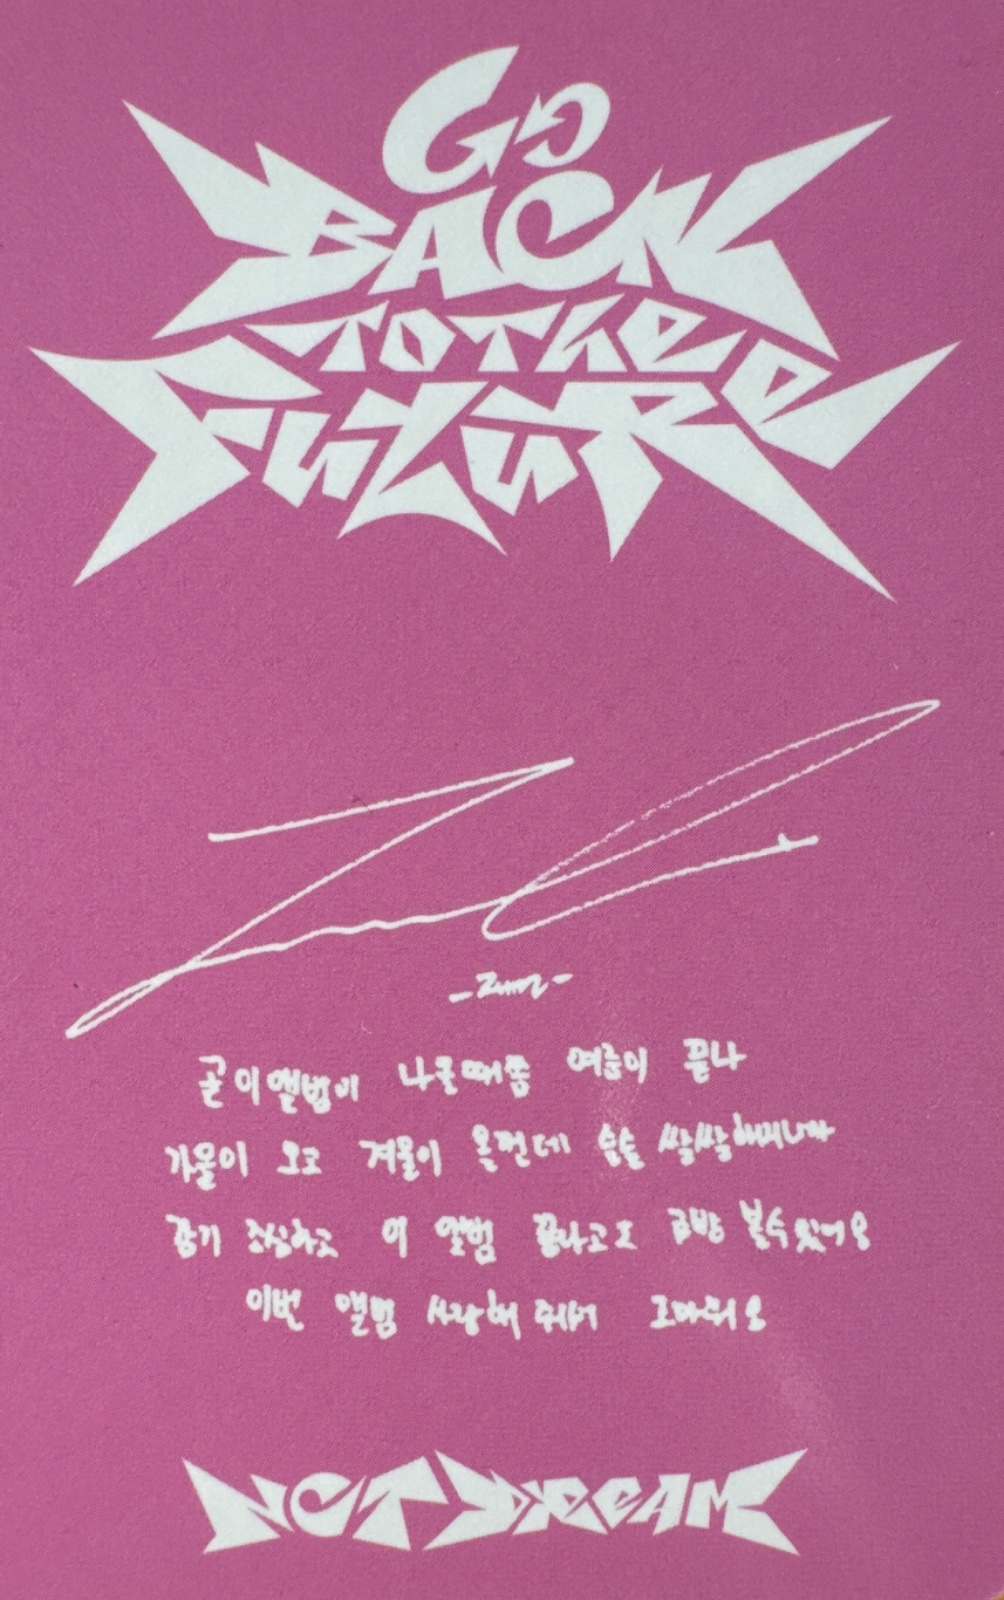 Go
BACK
TO THE
FUTURE
곧 이 앨범이 나올때쯤 여름이 끝나
가을이 오고 겨울이 올텐데 슬슬 쌀쌀해지니까
감기 조심하고 이 앨범 끝나고도 금방 볼수있어요
이번 앨범 사랑해 줘서 고마워요
NCT DREAM